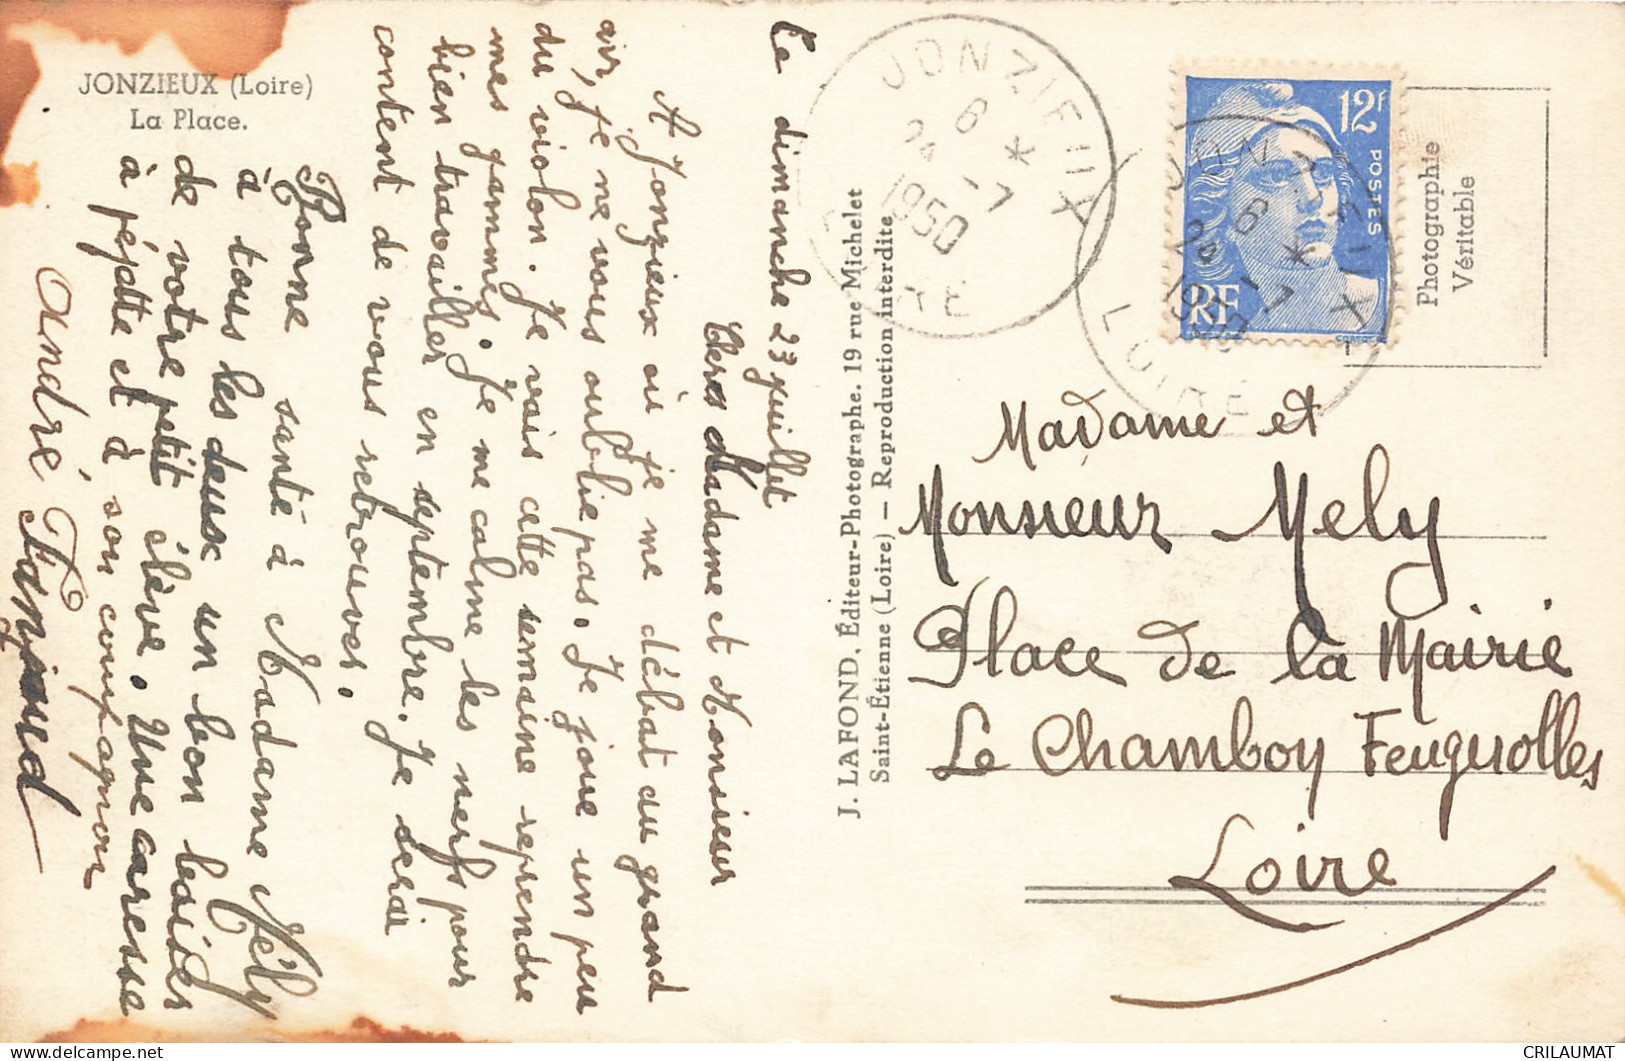 JONZIEUX (Loire)
La Place.
Le dimanche 23 juillet
Chers Madame et Monsieur
A Jonzieux où je me débat au grand
air, je ne vous oublie pas. Je joue un peu
du violon. Je vais cette semaine reprendre
mes gammes. Je me calme les nerfs pour
bien travailler en septembre. Je serai
content de vous retrouver.
Bonne santé à Madame Mély
à tous les deux un bon baiser
de votre petit élève. Une caresse
à péjette et à son compagnon
André
J. LAFOND, Éditeur-Photographe. 19 rue Michelet
Saint-Étienne (Loire) — Reproduction interdite
JONZIEUX
6 *
24 -7
1950
LOIRE
12F
POSTES
RF
JONZIEUX
6 *
24 -7
1950
LOIRE
Photographie
Véritable
Madame et
Monsieur Mely
Place de la Mairie
Le Chambon Feugerolles
Loire
CRILAUMAT